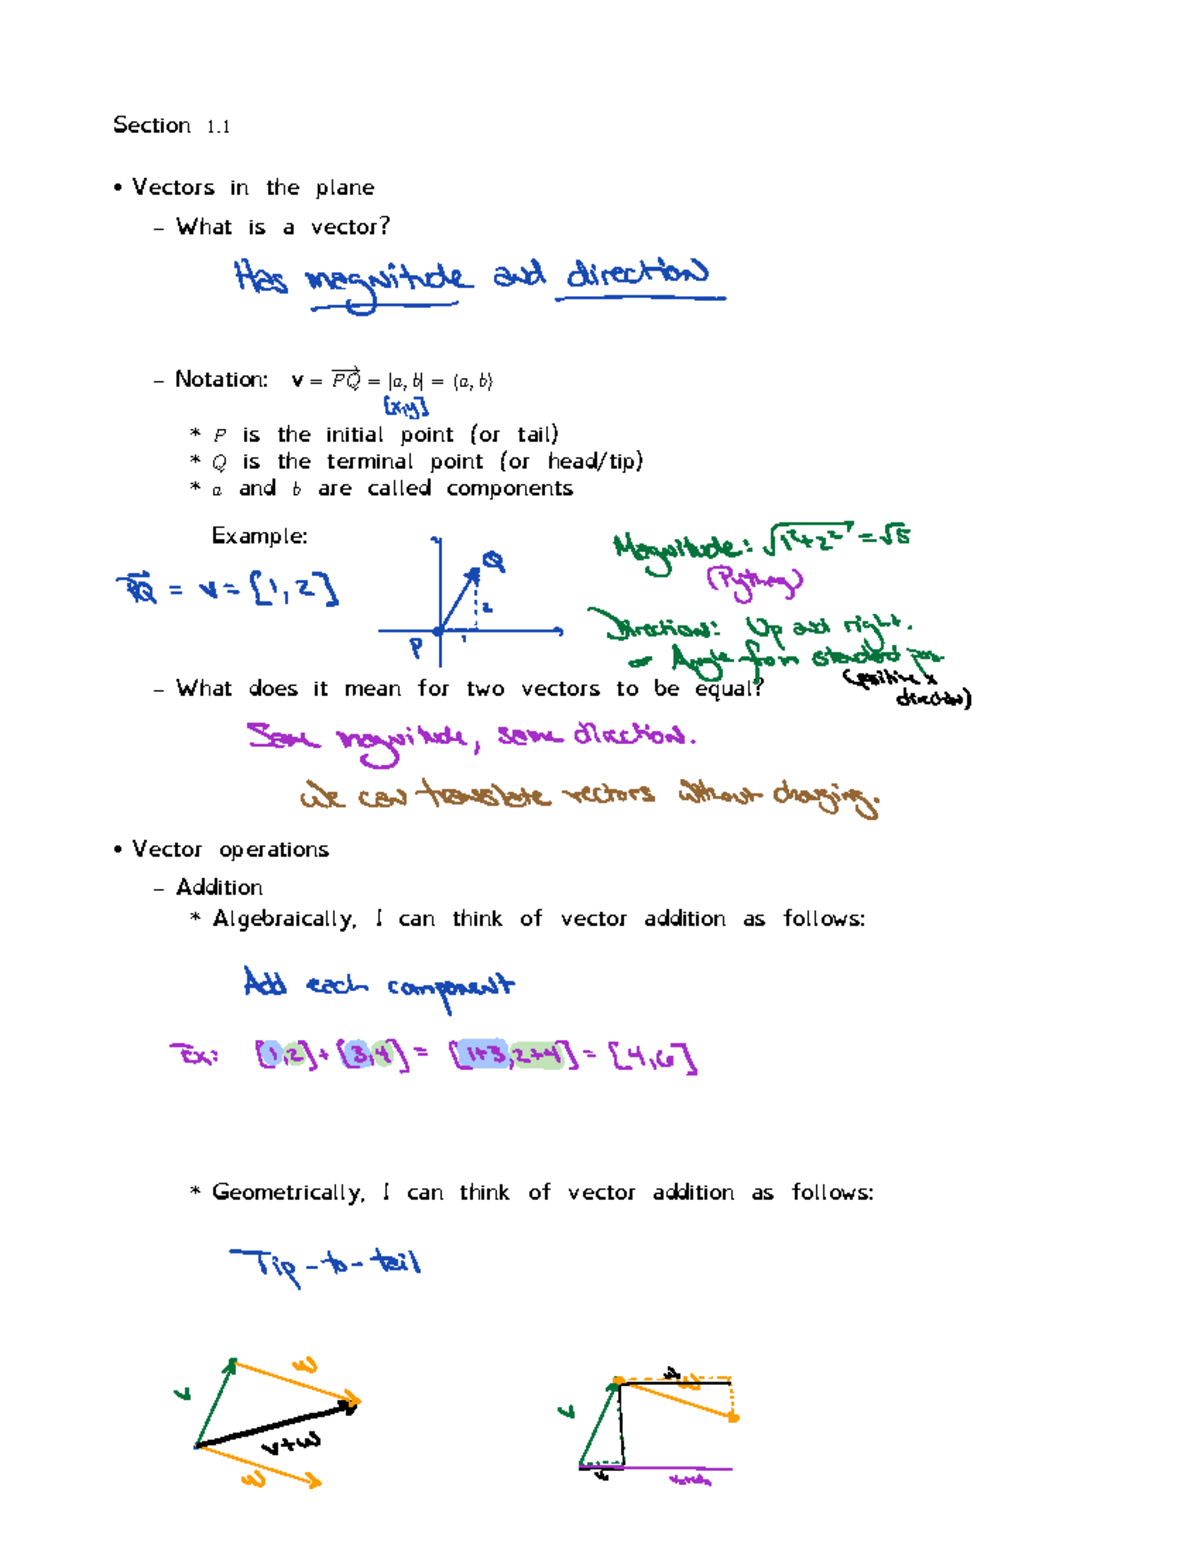 Section 1.1
• Vectors in the plane
– What is a vector?
Has magnitude and direction
– Notation: v = PQ = [a, b] = ⟨a, b⟩
[x,y]
* P is the initial point (or tail)
* Q is the terminal point (or head/tip)
* a and b are called components
Example:
PQ = v = [1, 2]
Q
2
P
1
Magnitude: √1²+2² = √5
(Pythag)
Direction: Up and right.
or Angle from standard pos
(positive x
direction)
– What does it mean for two vectors to be equal?
Same magnitude, same direction.
We can translate vectors without changing.
• Vector operations
– Addition
* Algebraically, I can think of vector addition as follows:
Add each component
Ex: [1,2] + [3,4] = [1+3,2+4] = [4,6]
* Geometrically, I can think of vector addition as follows:
Tip-to-tail
v
w
v+w
w
v
w
w
v